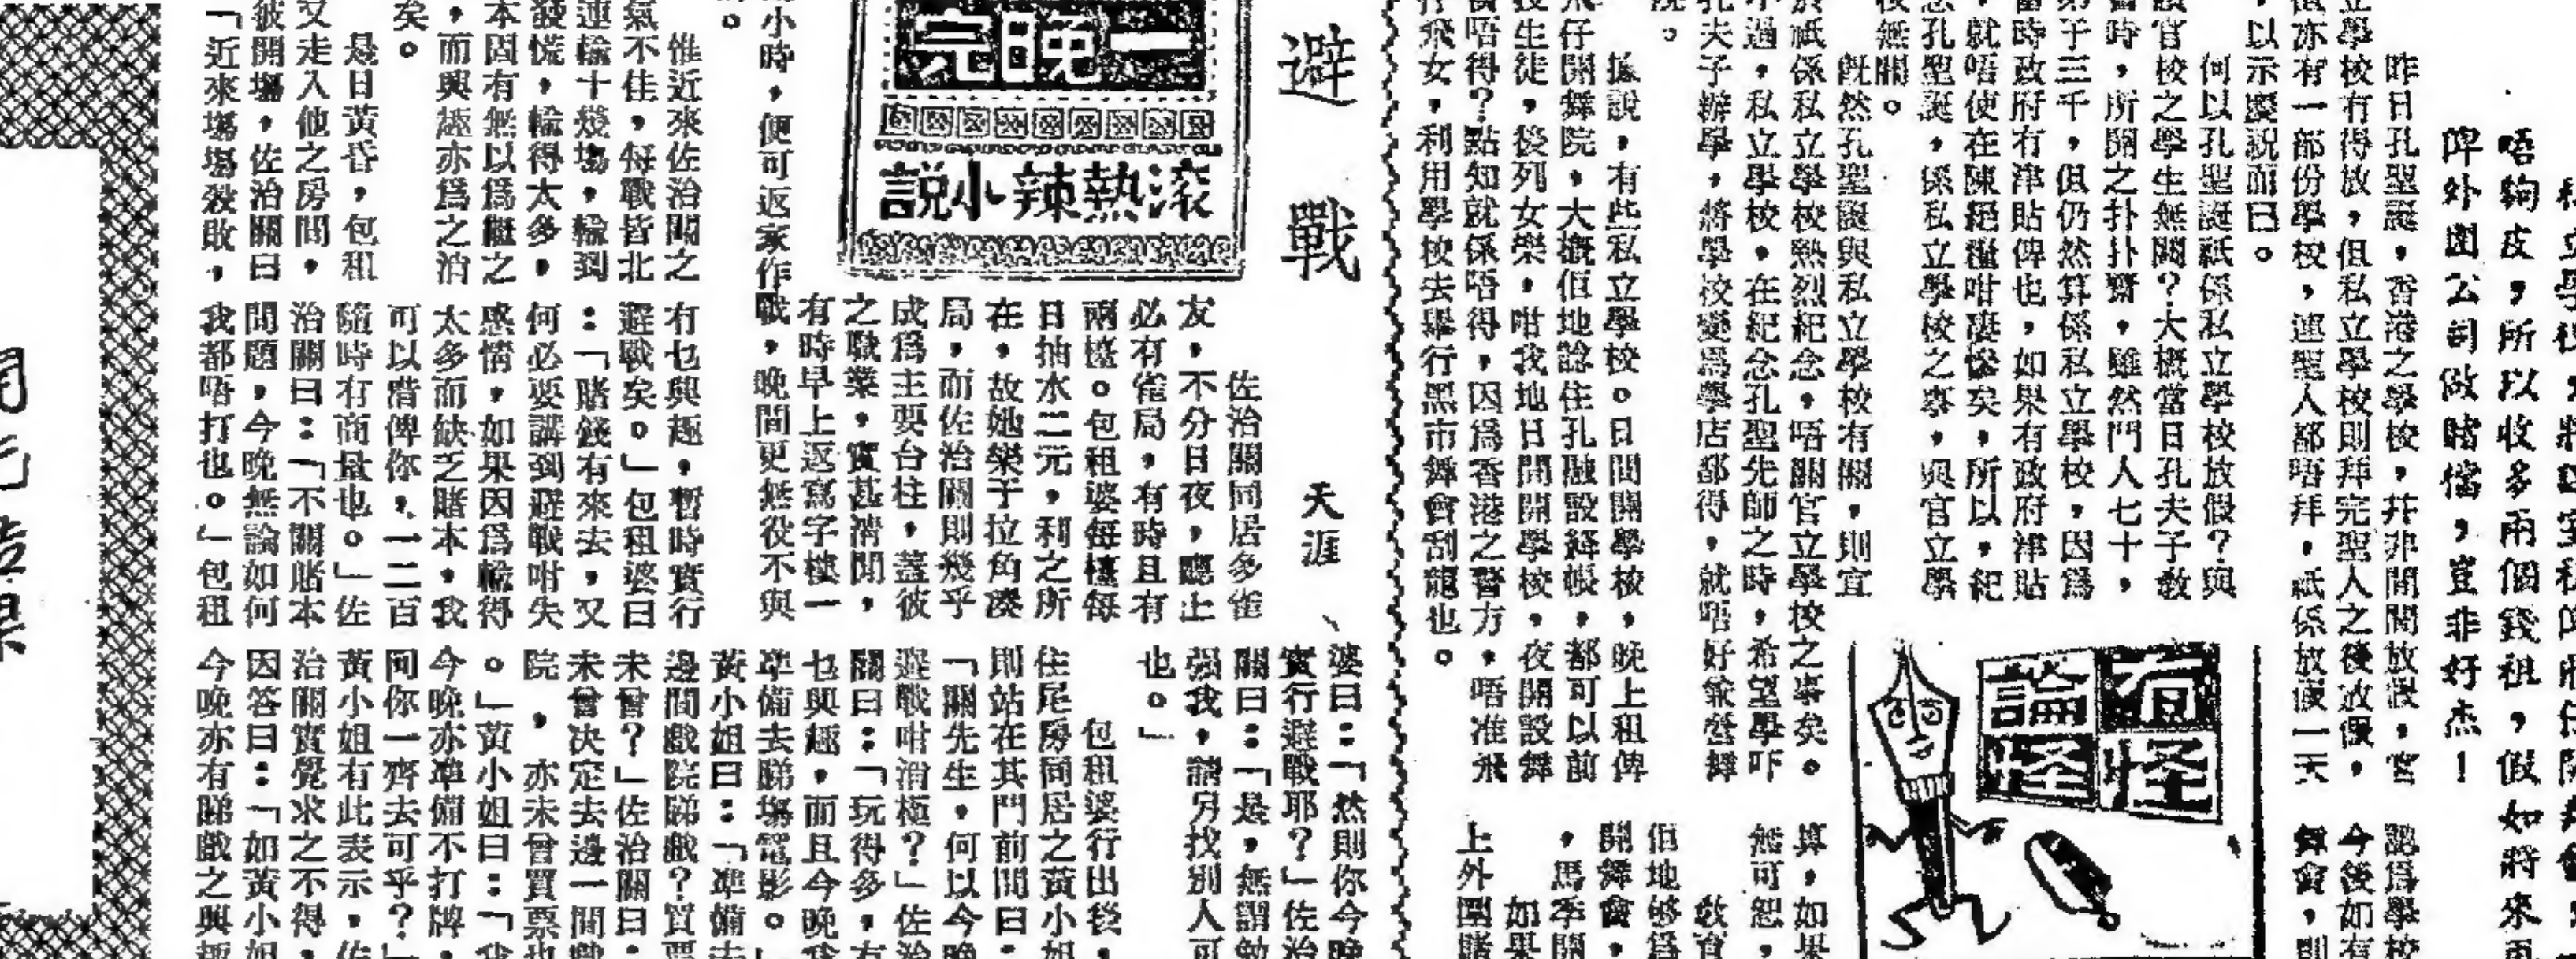 唔夠皮，所以收多兩個錢租，假如將來再
俾外圍公司做賭檔，豈非好杰！
昨日孔聖誕，香港之學校，幷非間間放假，官
立學校有得放，但私立學校則拜完聖人之後放假，
但亦有一部份學校，連聖人都唔拜，祇係放假一天
，以示慶祝而已。
何以孔聖誕祇係私立學校放假？與
官校之學生無關？大概當日孔夫子教
時，所關之扑扑齋，雖然門人七十，
弟子三千，但仍然算係私立學校，因爲
當時政府有津貼俾也，如果有政府津貼
，就唔使在陳絕糧咁凄慘矣，所以，紀
念孔聖誕，係私立學校之事，與官立學
校無關。
既然孔聖誕與私立學校有關，則宜
於祇係私立學校熱烈紀念，唔關官立學校之事矣。
不過，私立學校，在紀念孔聖先師之時，希望學吓
孔夫子辦學，將學校變爲學店都得，就唔好兼營舞
院。
據說，有些私立學校。日間開學校，晚上租俾
飛仔開舞院，大概佢地諗住孔融設絳帳，都可以前
授生徒，後列女樂，咁我地日間開學校，夜開設舞
唔得？點知就係唔得，因爲香港之警方，唔准飛
仔飛女，利用學校去舉行黑市舞會刮龍也。
有怪
論怪
認爲學校
今後如有
舞會，則
算，如果
無可恕，
教育
佢地夠爲
開舞會，
，馬季開
如果
上外圍賭
避戰
天涯
一晚完
滾熱辣小說
佐治關同居多雀
友，不分日夜，廳上
必有雀局，有時且有
兩檯。包租婆每檯每
日抽水二元，利之所
在，故她樂于拉角湊
局，而佐治關則幾乎
成爲主要台柱，蓋彼
之職業，實甚清閒，
有時早上返寫字樓一
小時，便可返家作
戰，晚間更無役不與
。
惟近來佐治關之
氣不佳，每戰皆北
連輸十幾塲，輸到
發慌，輸得太多，
本固有無以爲繼之
，而興趣亦爲之消
矣。
是日黃昏，包租
又走入他之房間，
彼開塲，佐治關曰
「近來塲塲殺敗，
冇乜興趣，暫時實行
避戰矣。」包租婆曰
：「賭錢有來去，又
何必要講到避戰咁失
感情，如果因爲輸得
太多而缺乏賭本，我
可以借俾你，一二百
隨時冇商量也。」佐
治關曰：「不關賭本
問題，今晚無論如何
我都唔打也。」包租
婆曰：「然則你今晚
實行避戰耶？」佐治
關曰：「是，無謂勉
强我，請另找別人可
也。」
包租婆行出後，
住尾房同居之黃小姐
則站在其門前問曰：
「關先生，何以今晚
避戰咁消極？」佐治
關曰：「玩得多，冇
乜興趣，而且今晚我
準備去睇塲電影。」
黃小姐曰：「準備去
邊間戲院睇戲？買票
未曾？」佐治關曰：
未曾决定去邊一間戲
院，亦未曾買票也
。」黃小姐曰：「我
今晚亦準備不打牌，
同你一齊去可乎？」
黃小姐有此表示，佐
治關實覺求之不得，
因答曰：「如黃小姐
今晚亦有睇戲之興趣